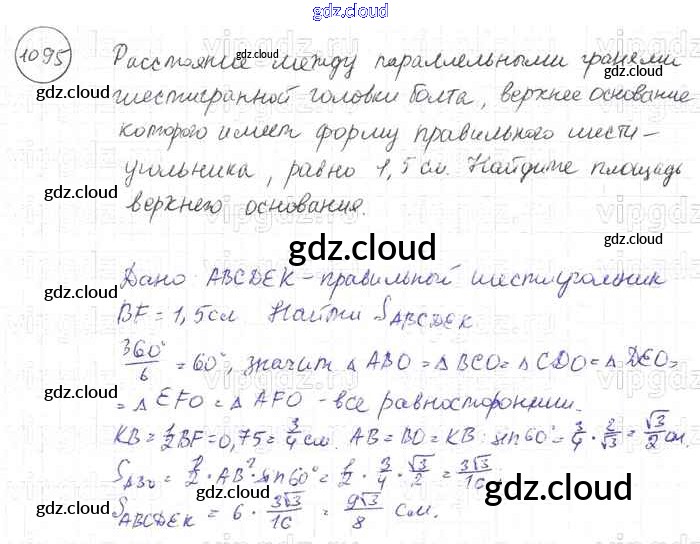 gdz.cloud
1095
Расстояние между параллельными гранями
шестигранной головки болта, верхнее основание
которого имеет форму правильного шести-
угольника, равно 1,5 см. Найдите площадь
верхнего основания.
gdz.cloud
Дано ABCDEK - правильной шестиугольник
BF = 1,5 см Найти S_ABCDEK
360°/6 = 60°, значит △ ABO = △ BCO = △ CDO = △ DEO =
= △ EFO = △ AFO - все равносторонние.
KB = 1/2 BF = 0,75 = 3/4 см. AB = BO = KB : sin60° = 3/4 · 2/√3 = √3/2 см.
S_ABO = 1/2 · AB² · sin60° = 1/2 · 3/4 · √3/2 = 3√3/16
S_ABCDEK = 6 · 3√3/16 = 9√3/8 см.